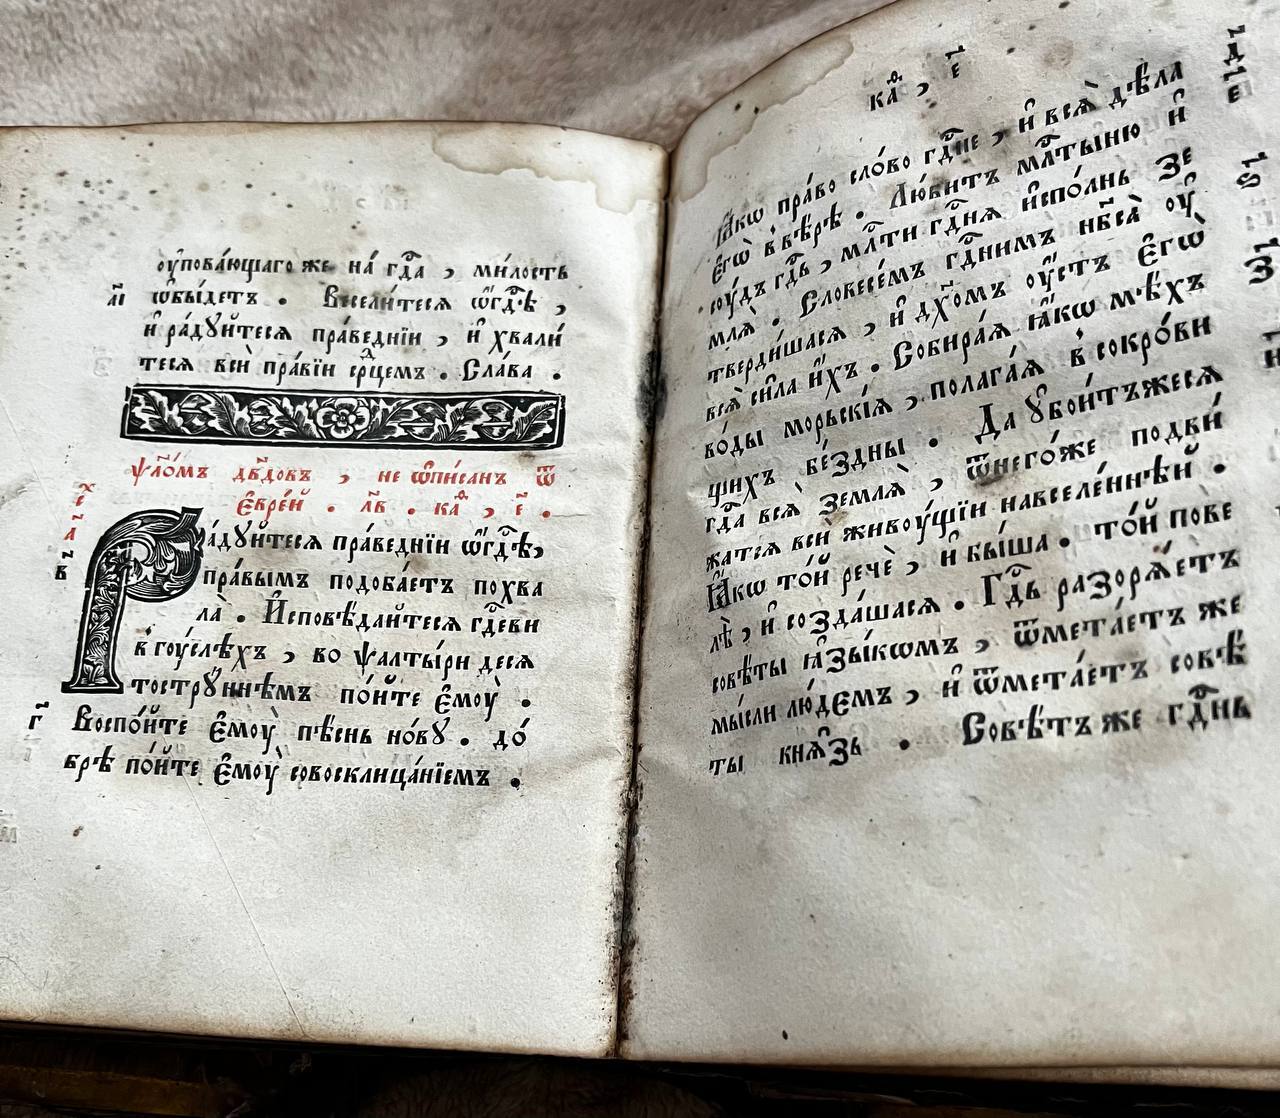 ᲂу҆пова́ющаго же на́ гдⷭ҇а , ми́лость
а҃і ѡ҆бы́детъ . Весели́теся ѡ҆гдⷭ҇ѣ ,
и҆ ра́дꙋйтеся пра́веднїи , и҆ хвали́
теся всѝ пра́вїи срⷣцемъ . Сла́ва .
ѱало́мъ дв҃довъ , не ѡ҆пи́санъ ѿ
є҆вре́й . л҃в . каѳ , є҃ .
Ра́дꙋйтеся пра́веднїи ѡ҆гдⷭ҇ѣ,
в҃ пра́вымъ подоба́етъ похва
ла̀ . И҆сповѣ́дайтеся гдⷭ҇еви
в гоу́слѣхъ , во ѱалты́ри деся
тострꙋ́ннѣмъ по́йте є҆моу̀ .
г҃ Воспо́йте є҆моу̀ пѣ́снь но́вꙋ . до́
брѣ по́йте є҆моу̀ совосклица́нїемъ .
каѳ , є҃
Ꙗ҆́кѡ пра́во сло́во гдⷭ҇не , и҆ вся̀ дѣ́ла
є҆гѡ̀ в вѣ́рѣ . Лю́битъ млⷭ҇тыню и҆
соу́дъ гдⷭ҇ь , млⷭ҇ти гдⷭ҇ня и҆спо́лнь зе
мля̀ . Словесе́мъ гдⷭ҇нимъ нб҃са̀ ᲂу҆
тверди́шася , и҆ дх҃омъ ᲂу҆́стъ є҆гѡ̀
вся̀ си́ла и҆́хъ . Собира́я ꙗ҆́кѡ мѣ́хъ
во́ды морьскі́я , полага́я в сокро́ви
щихъ бе́здны . Да ᲂу҆бои́тъжеся
гдⷭ҇а вся̀ земля̀ , ѿнего́же подви́
жатся всѝ живоу́щїи навселе́ннѣй .
Ꙗ҆́кѡ то́й речѐ , и҆ бы́ша . то́й пове
лѣ̀ , и҆ созда́шася . Гдⷭ҇ь разоря́етъ
совѣ́ты ꙗ҆зы́кѡмъ , ѿмета́етъ же
мы́сли лю́демъ , и҆ ѿмета́етъ совѣ́
ты кня́зь . Совѣ́тъ же гдⷭ҇нь